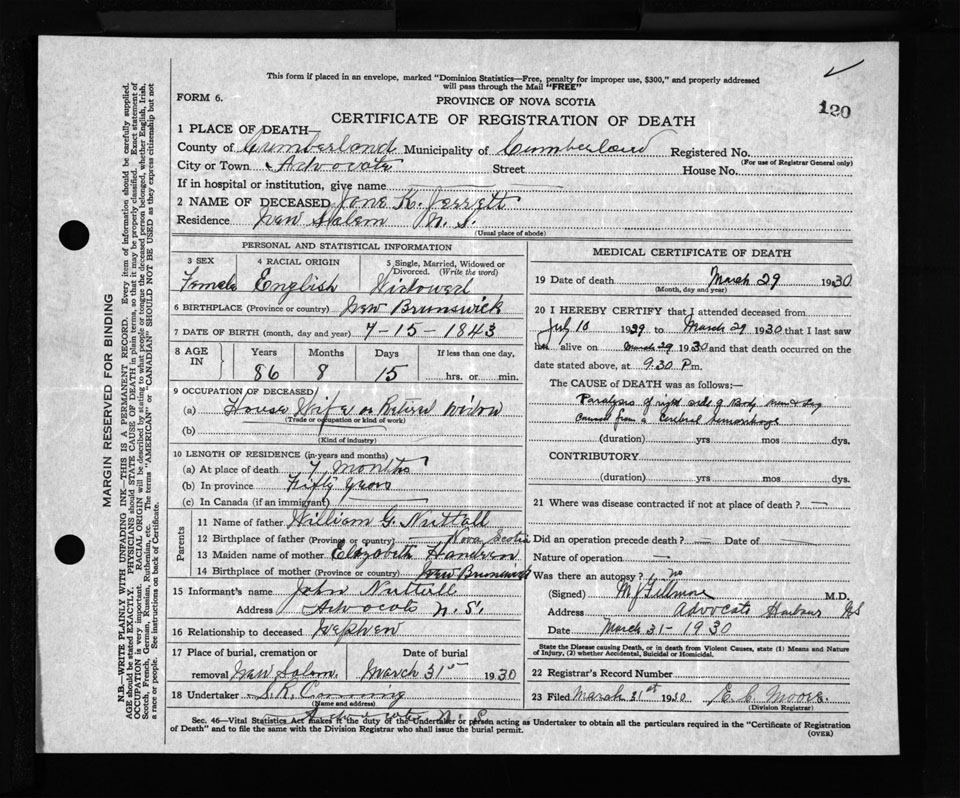 This form if placed in an envelope, marked "Dominion Statistics—Free, penalty for improper use, $300," and properly addressed
will pass through the Mail "FREE"
FORM 6.
PROVINCE OF NOVA SCOTIA
120
CERTIFICATE OF REGISTRATION OF DEATH
1 PLACE OF DEATH—
County of Cumberland Municipality of Cumberland Registered No.
(For use of Registrar General only)
City or Town Advocate Street House No.
If in hospital or institution, give name
2 NAME OF DECEASED Jane K. Jerrett
Residence New Salem N. S.
(Usual place of abode)
PERSONAL AND STATISTICAL INFORMATION
3 SEX
Female
4 RACIAL ORIGIN
English
5 Single, Married, Widowed or
Divorced. (Write the word)
Widowed
6 BIRTHPLACE (Province or country) New Brunswick
7 DATE OF BIRTH (month, day and year) 7-15-1843
8 AGE IN
Years Months Days If less than one day,
86 8 15 hrs. or min.
9 OCCUPATION OF DECEASED
(a) House Wife or Retired widow
(Trade or occupation or kind of work)
(b)
(Kind of industry)
10 LENGTH OF RESIDENCE (in years and months)
(a) At place of death 7 months
(b) In province Fifty years
(c) In Canada (if an immigrant)
Parents
11 Name of father William G. Nuttall
12 Birthplace of father (Province or country) Nova Scotia
13 Maiden name of mother Elizabeth
14 Birthplace of mother (Province or country) New Brunswick
15 Informant's name John Nuttall
Address Advocate N. S.
16 Relationship to deceased Nephew
17 Place of burial, cremation or Date of burial
removal New Salem March 31st 1930
18 Undertaker S. K.
(Name and address)
Advocate N. S.
MEDICAL CERTIFICATE OF DEATH
19 Date of death March 29 1930
(Month, day and year)
20 I HEREBY CERTIFY that I attended deceased from
July 10 1929 to March 29 1930 that I last saw
her alive on March 29 1930 and that death occurred on the
date stated above, at 9.30 P.m.
The CAUSE of DEATH was as follows:—
Paralysis of right side of Body arm & leg
caused from a cerebral hemorrhage
(duration) yrs mos dys.
CONTRIBUTORY
(duration) yrs mos dys.
21 Where was disease contracted if not at place of death?
Did an operation precede death? Date of
Nature of operation
Was there an autopsy? no
(Signed) M J Fillmore M.D.
Address Advocate Harbour NS
Date March 31-1930
State the Disease causing Death, or in death from Violent Causes, state (1) Means and Nature
of Injury, (2) whether Accidental, Suicidal or Homicidal.
22 Registrar's Record Number
23 Filed March 31st 1930 E. C. Moore
(Division Registrar)
Sec. 46—Vital Statistics Act makes it the duty of the Undertaker or person acting as Undertaker to obtain all the particulars required in the "Certificate of Registration
of Death" and to file the same with the Division Registrar who shall issue the burial permit.
(OVER)
MARGIN RESERVED FOR BINDING
N.B.—WRITE PLAINLY WITH UNFADING INK—THIS IS A PERMANENT RECORD. Every item of information should be carefully supplied.
AGE should be stated EXACTLY. PHYSICIANS should STATE CAUSE OF DEATH in plain terms, so that it may be properly classified. Exact statement of
OCCUPATION is very important. RACIAL ORIGIN will be described by stating to what people or tongue the deceased person belonged, whether English, Irish,
Scotch, French, German, Russian, Ruthenian, etc. The terms "AMERICAN" or "CANADIAN" SHOULD NOT BE USED as they express citizenship but not
a race or people. See instructions on back of Certificate.